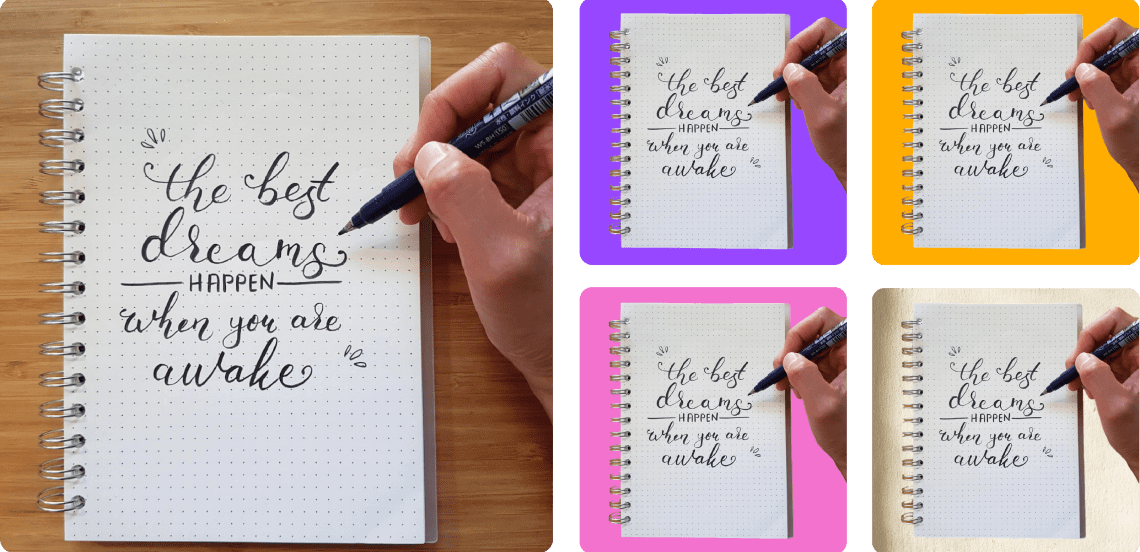 the best
dreams
HAPPEN
when you are
awake
the best
dreams
HAPPEN
when you are
awake
the best
dreams
HAPPEN
when you are
awake
the best
dreams
HAPPEN
when you are
awake
the best
dreams
HAPPEN
when you are
awake